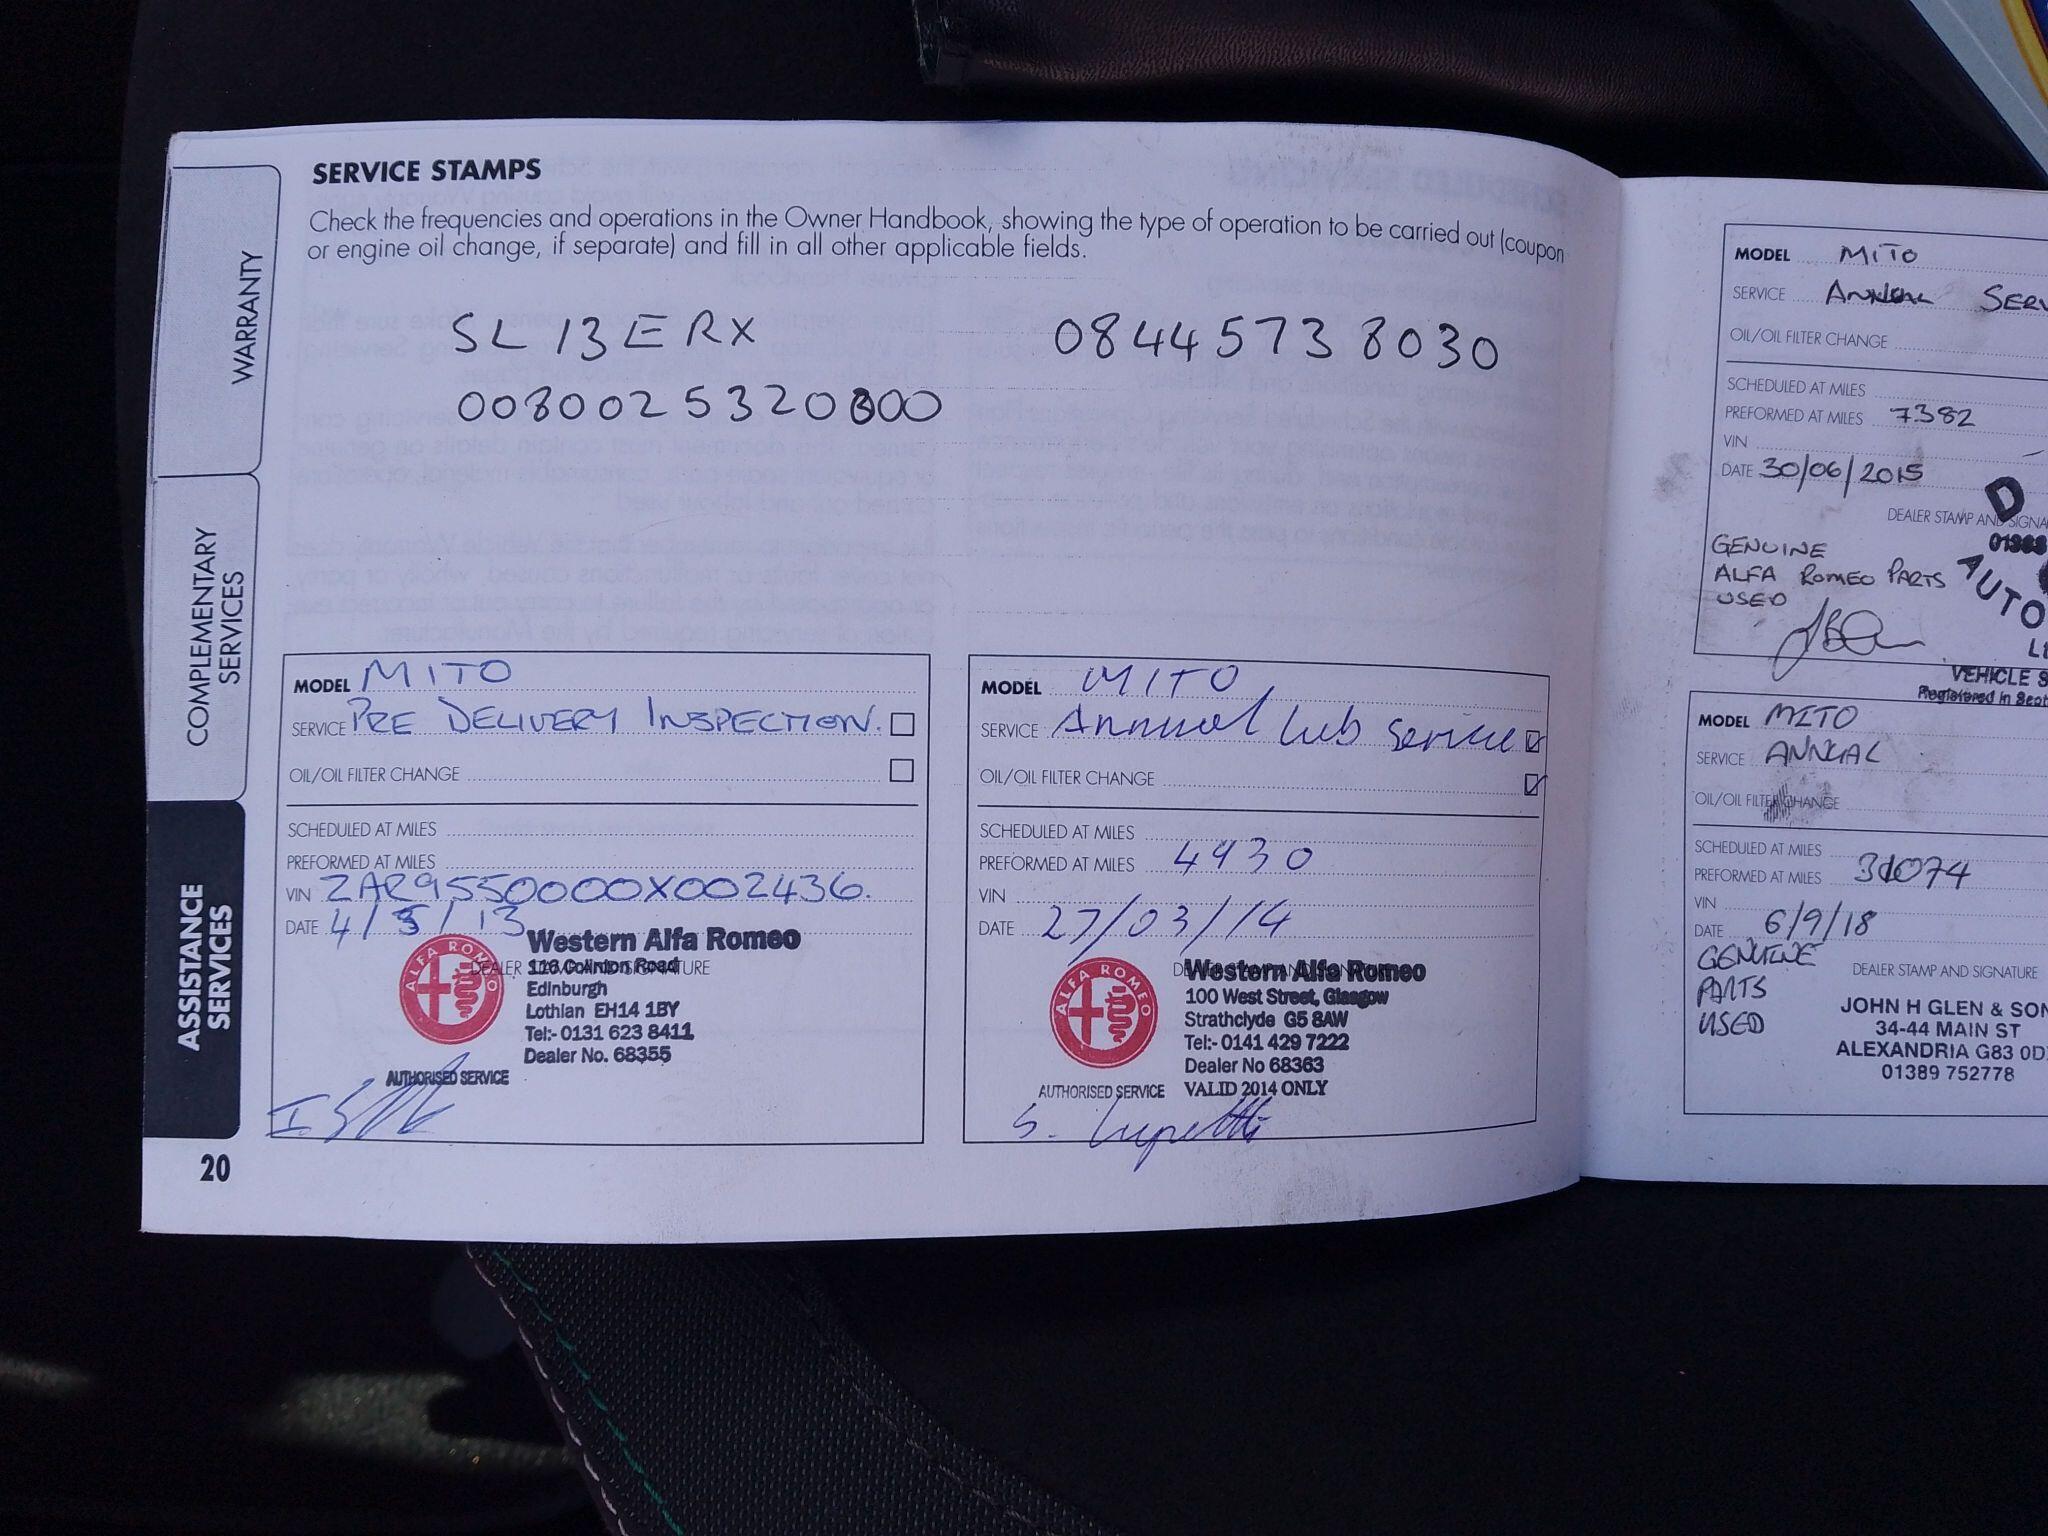 SERVICE STAMPS
Check the frequencies and operations in the Owner Handbook, showing the type of operation to be carried out (coupon
or engine oil change, if separate) and fill in all other applicable fields.
SL13ERX
0080025320800
08445738030
WARRANTY
COMPLEMENTARY
SERVICES
ASSISTANCE
SERVICES
MODEL MITO
SERVICE PRE DELIVERY INSPECTION.
OIL/OIL FILTER CHANGE
SCHEDULED AT MILES
PREFORMED AT MILES
VIN ZAR9550000X002436.
DATE 4/3/13
DEALER STAMP AND SIGNATURE
Western Alfa Romeo
116 Colinton Road
Edinburgh
Lothian EH14 1BY
Tel:- 0131 623 8411
Dealer No. 68355
ALFA ROMEO
AUTHORISED SERVICE
20
MODEL MITO
SERVICE Annual Lub Service
OIL/OIL FILTER CHANGE
SCHEDULED AT MILES
PREFORMED AT MILES 4930
VIN
DATE 27/03/14
Western Alfa Romeo
100 West Street, Glasgow
Strathclyde G5 8AW
Tel:- 0141 429 7222
Dealer No 68363
VALID 2014 ONLY
ALFA ROMEO
AUTHORISED SERVICE
MODEL MITO
SERVICE ANNUAL SERV
OIL/OIL FILTER CHANGE
SCHEDULED AT MILES
PREFORMED AT MILES 7382
VIN
DATE 30/06/2015
DEALER STAMP AND SIGNA
GENUINE
ALFA ROMEO PARTS
USED
D
AUTO
VEHICLE S
MODEL MITO
SERVICE ANNUAL
OIL/OIL FILTER CHANGE
SCHEDULED AT MILES
PREFORMED AT MILES 31074
VIN
DATE 6/9/18
GENUINE
PARTS
USED
DEALER STAMP AND SIGNATURE
JOHN H GLEN & SON
34-44 MAIN ST
ALEXANDRIA G83 0D
01389 752778